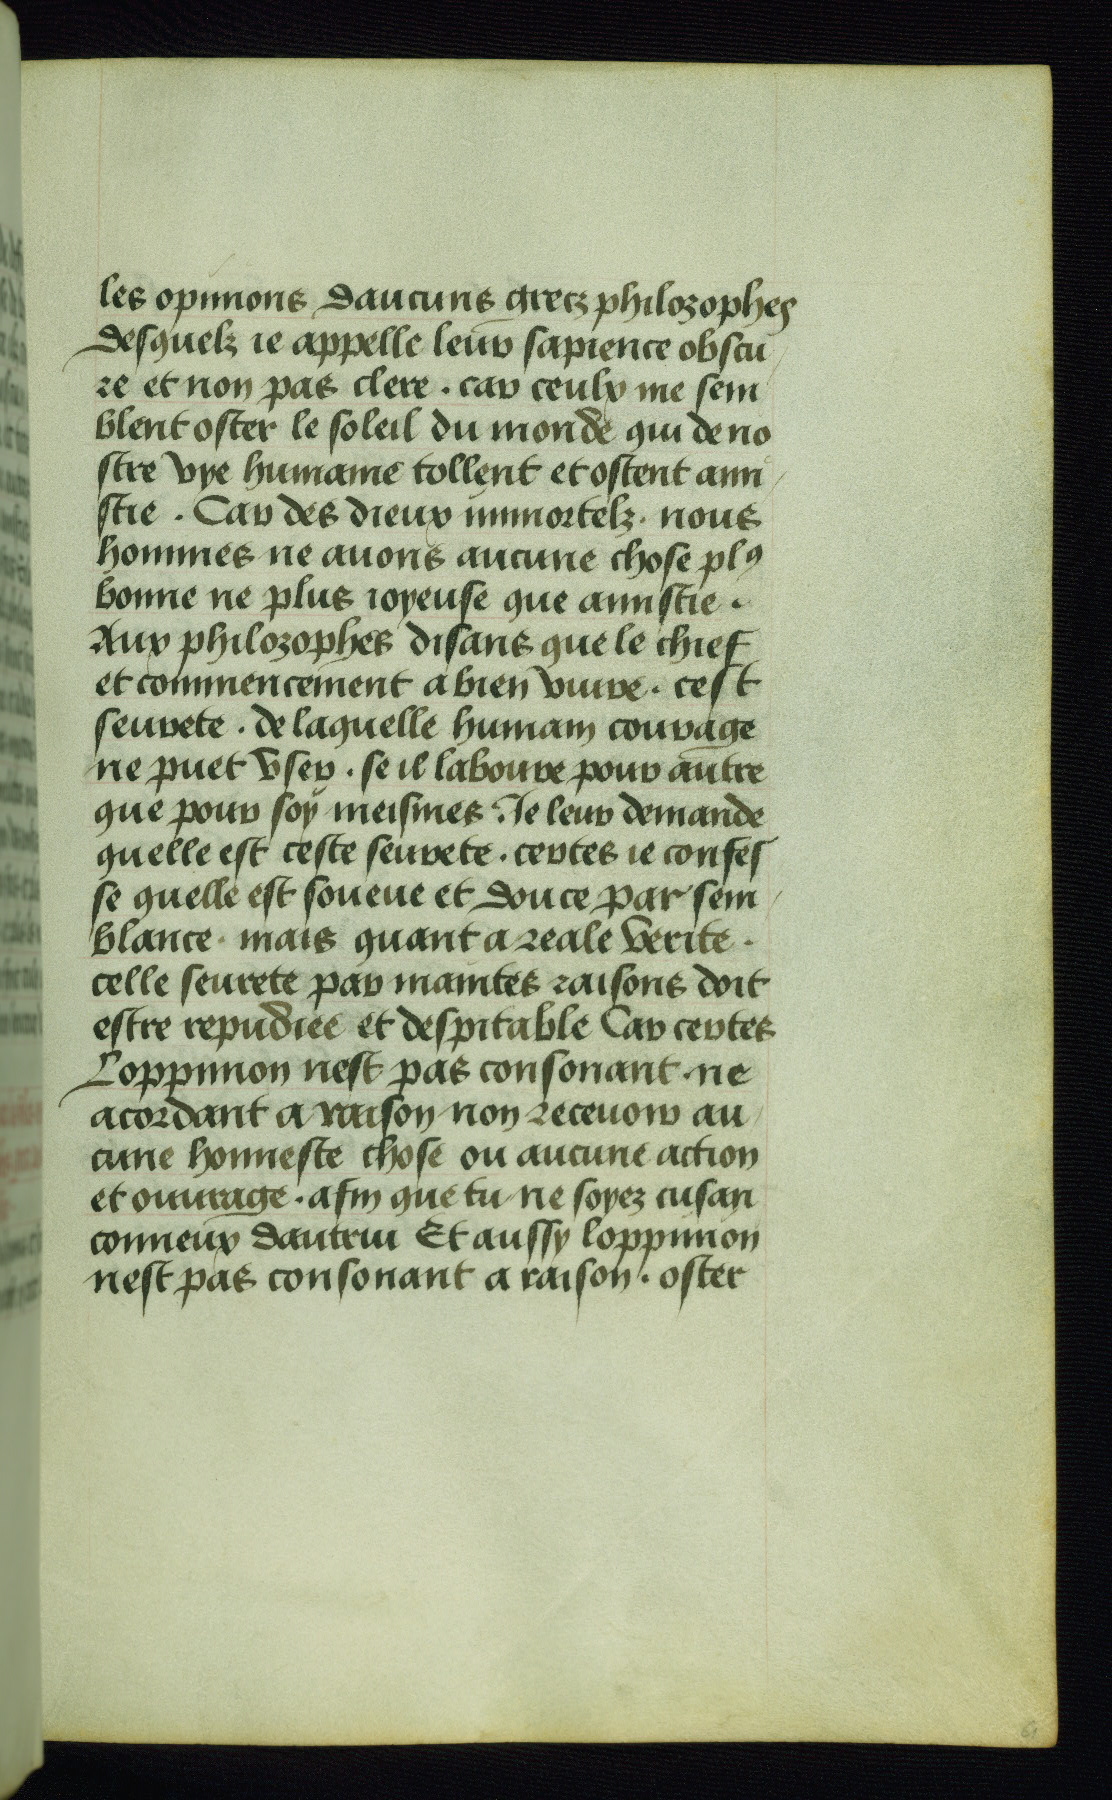 les opinions daucuns grecz philozophes
desquelz ie appelle leur sapience obscu
re et non pas clere . car ceulx me sem
blent oster le soleil du monde qui de no
stre vye humaine tollent et ostent ami
stie . Car des dieux immortelz . nous
hommes ne auons aucune chose plꝯ
bonne ne plus ioyeuse que amistie .
Aux philozophes disans que le chief
et commencement a bien viure . cest
seurete . de laquelle humain courage
ne puet vser . se il laboure pour autre
que pour soy meismes . Je leur demande
quelle est ceste seurete . certes ie confes
se quelle est soueue et douce par sem
blance . mais quant a reale verite .
celle seurete par maintes raisons doit
estre repudiee et despitable Car certes
Loppinion nest pas consonant . ne
acordant a raison non receuoir au
cune honneste chose ou aucune action
et ouurage . afin que tu ne soyez cusan
conneux dautrui Et aussy loppinion
nest pas consonant a raison . oster
61